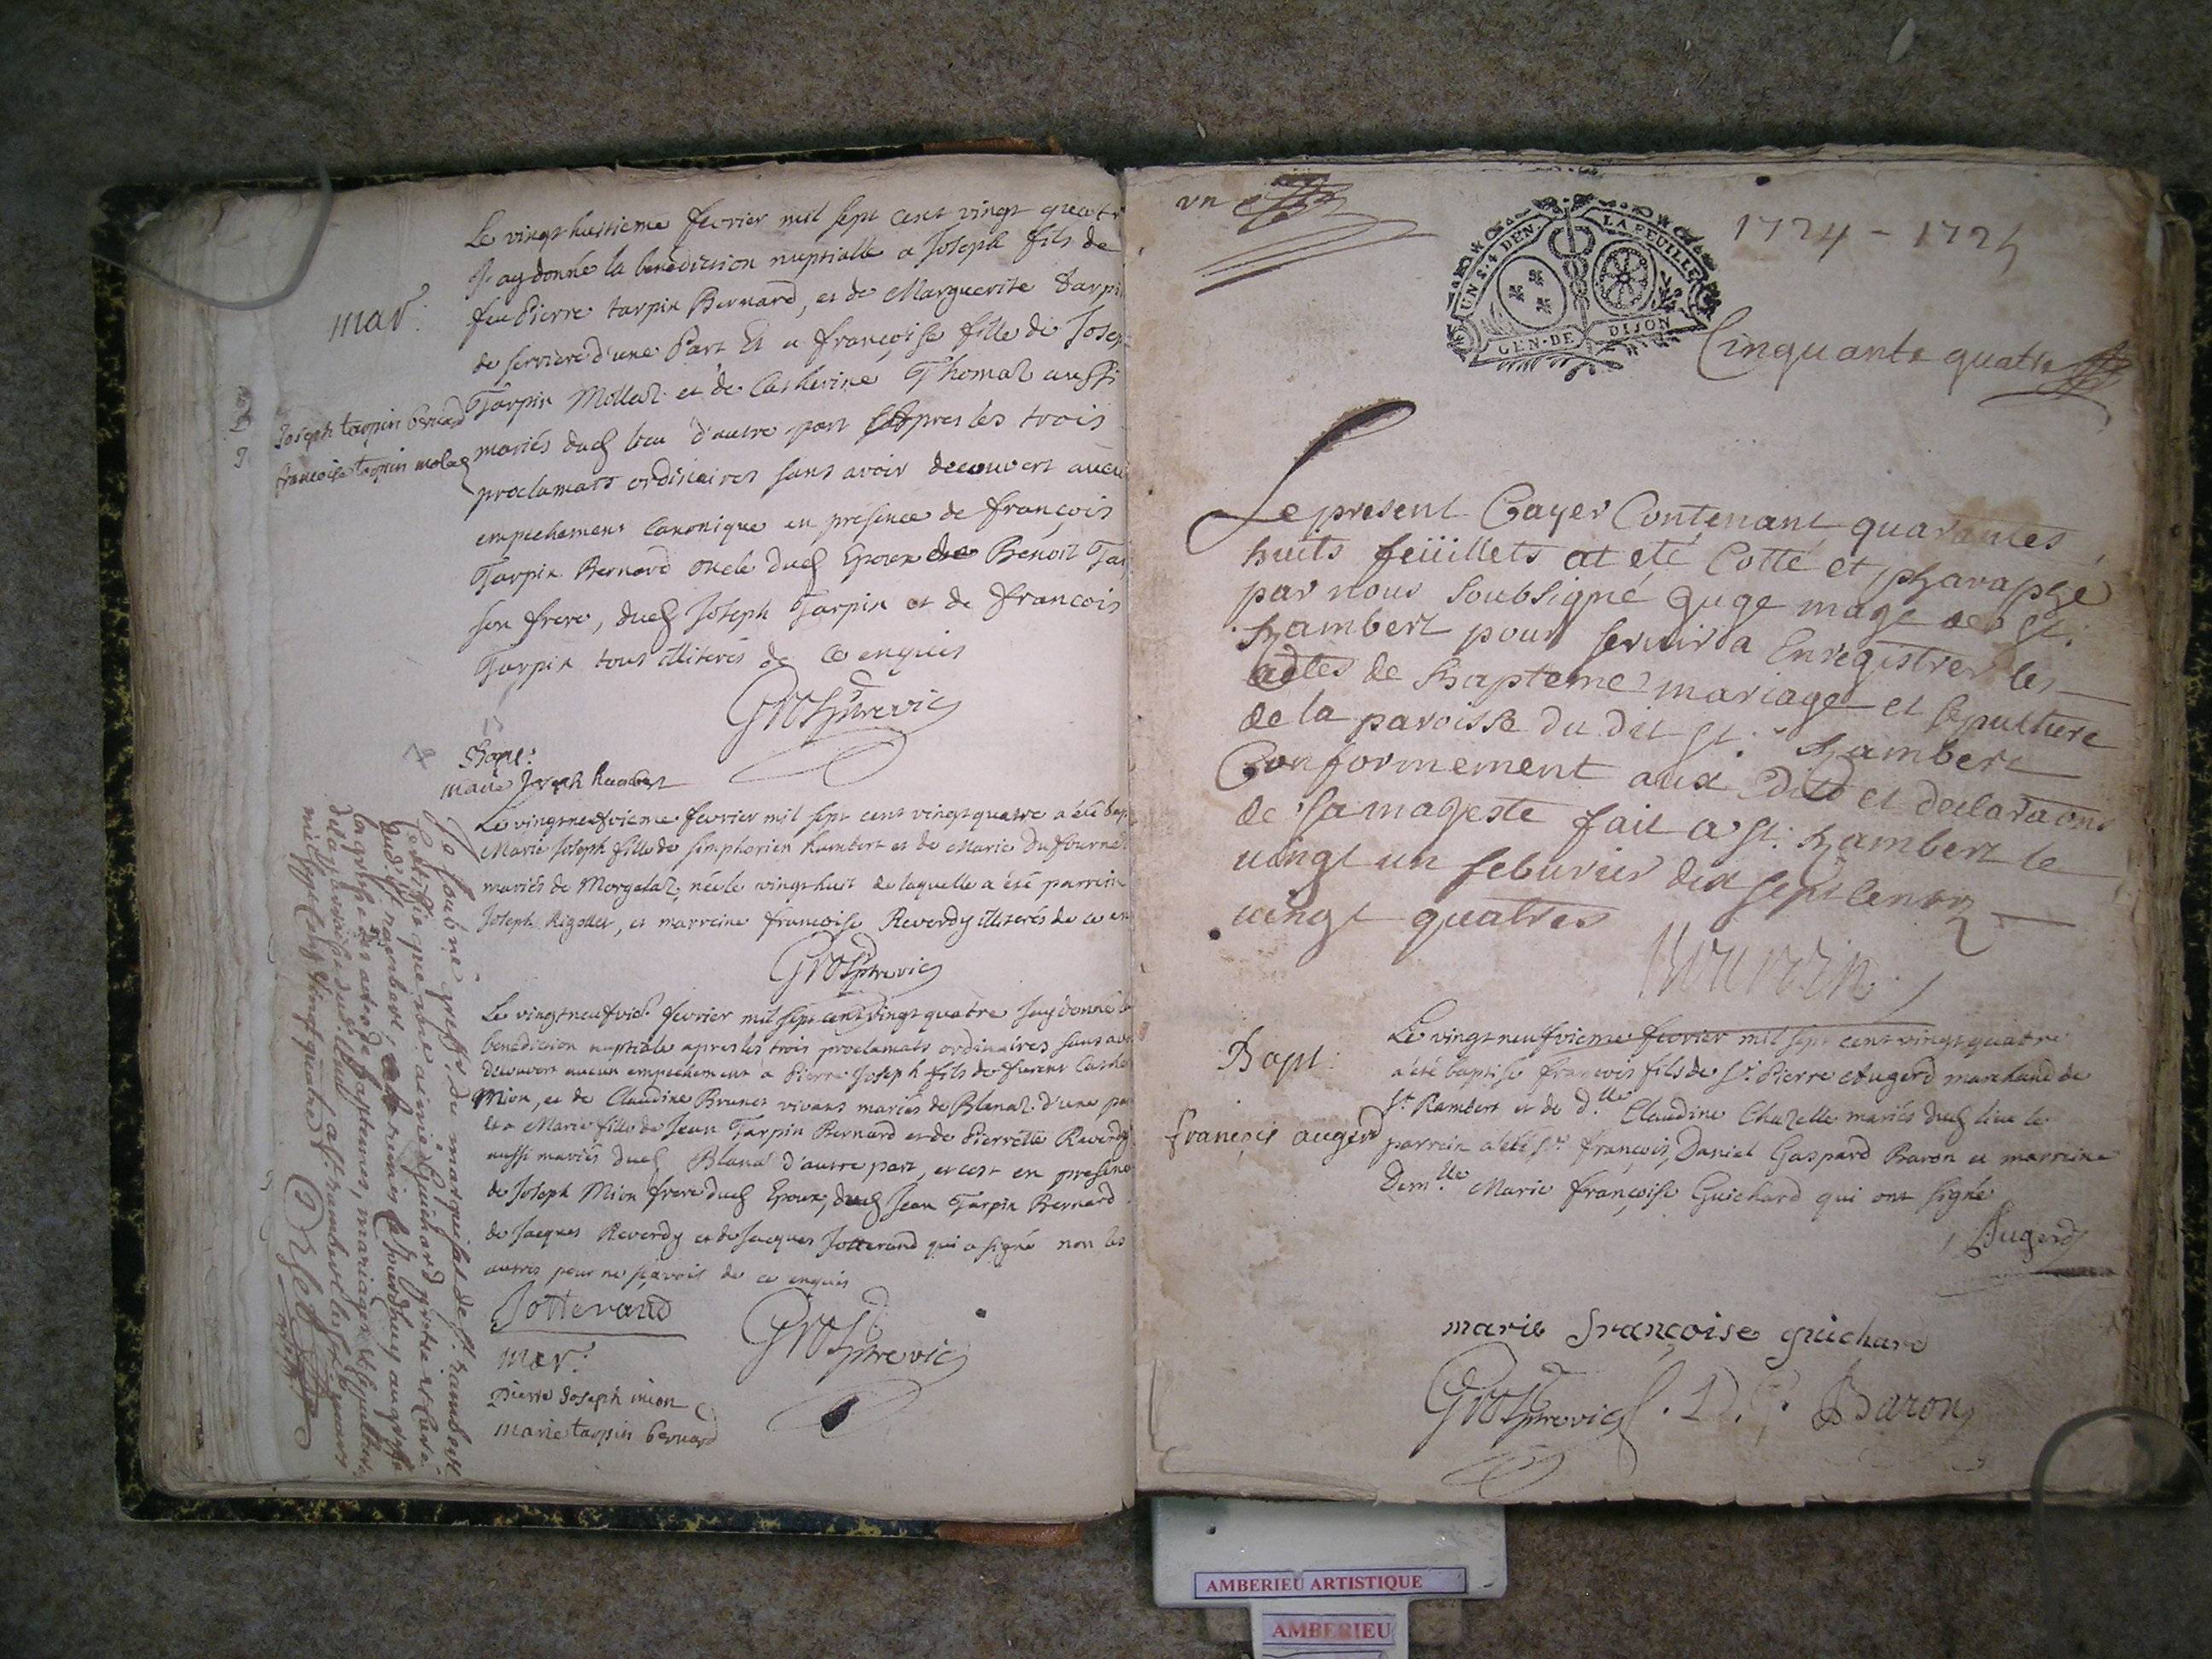 Le vingt huitieme fevrier mil sept cent vingt quatr
J'ay donné la benediction nuptialle a Joseph fils de
feu Pierre tarpin Bernard, et de Marguerite Tarpi
de serriere d'une Part Et a françoise fille de Josep
Tarpin Mollaz et de Catherine Thomaz aussi
mariés dud lieu d'autre part Et Apres les trois
proclamats ordinaires sans avoir decouvert aucu
empechement Canonique en presence de françois
Tarpin Bernard oncle dud Epoux de Benoit Tar
son frere, dud Joseph Tarpin et de françois
Tarpin tous illiterés de ce enquis
mar:
Joseph tarpin bernard
francoise tarpin molaz
Bapt:
marie Joseph humbert
Le vingtneufvieme fevrier mil sept cent vingt quatre a été bap
Marie Joseph fille de simphorien humbert et de Marie Dufournet
mariés de Morgelaz, née le vingt huit de laquelle a été parrein
Joseph Rigollet, et marreine francoise Reverdy illiterés de ce en
Le vingtneufvie. fevrier mil sept cent vingt quatre Jay donné la
benediction nuptiale apres les trois proclamats ordinaires sans avo
decouvert aucun empechement a Pierre Joseph fils de
Mion, et de Claudine Brunet vivans mariés de Blanaz d'une par
et a Marie fille de Jean Tarpin Bernard et de Pierrette Reverdy
aussi mariés dud Blanaz d'autre part, et cest en presence
de Joseph Mion frere dud Epoux, dud Jean Tarpin Bernard
de Jacques Reverdy et de Jacques Jotterand qui a signé non les
autres pour ne sçavoir de ce enquis
Jotterand
mar:
Pierre Joseph mion
marie tarpin bernard
Je soubné greff. du marquisat de st. rambert
certiffie que mre aimé Guichard ptre et curé
dud st rambert, remis ce jourdhuy au greffe
la grosse des actes de baptemes, mariages et sepultures
de la parroisse dud. lieu a st. rambert le
mil sept cent vingt quatre
un
UN S. 4 DEN. LA FEUILLE
GEN. DE DIJON
1724 - 1725
Cinquante quatre
Le present Cayer Contenant quarantes
huits feüillets at eté Cotté et pharaphé
par nous soubsigné Juge mage de St.
Rambert pour servir a Enregistrer les
actes de Bapteme mariage et sepulture
de la paroisse du dit St. Rambert
Conformement aux Edits et declaraons
de sa majesté fait a St. Rambert le
vingt un feburier dix sept Cents
vingt quatres
Bapt:
françois augerd
Le vingt neufvieme fevrier mil sept cent vingt quatre
a été baptisé francois fils de Sr. Pierre Augerd marchand de
St Rambert et de d.lle Claudine Chazelle mariés dud lieu le
parrein a été Sr. françois, Daniel Gaspard Baron et marreine
Dem.lle Marie françoise Guichard qui ont signé
Augerd
marie françoise guichard
f. D. G. Baron
AMBERIEU ARTISTIQUE
AMBERIEU